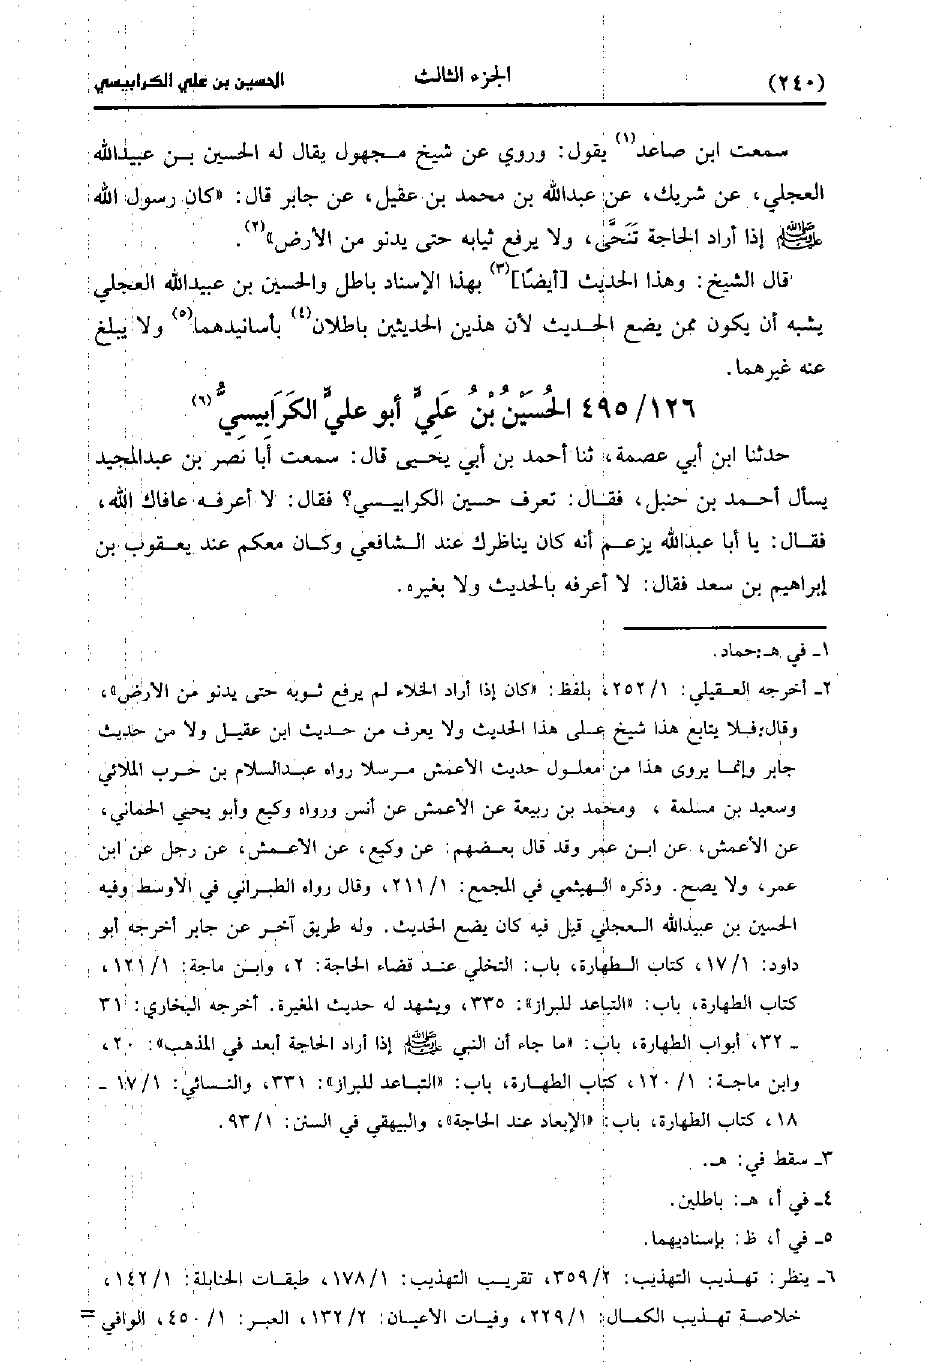 (٢٤٠) الجزء الثالث الحسين بن علي الكرابيسي
سمعت ابن صاعد(١) يقول: وروي عن شيخ مجهول يقال له الحسين بن عبيدالله
العجلي، عن شريك، عن عبدالله بن محمد بن عقيل، عن جابر قال: «كان رسول الله
ﷺ إذا أراد الحاجة تَنَحَّى، ولا يرفع ثيابه حتى يدنو من الأرض»(٢).
قال الشيخ: وهذا الحديث [أيضًا](٣) بهذا الإسناد باطل والحسين بن عبيدالله العجلي
يشبه أن يكون ممن يضع الحديث لأن هذين الحديثين باطلان(٤) بأسانيدهما(٥) ولا يبلغ
عنه غيرهما.
٤٩٥/١٢٦ الحُسَيْنُ بْنُ عَلِيٍّ أبو عليٍّ الكَرَابِيسِيُّ(٦)
حدثنا ابن أبي عصمة، ثنا أحمد بن أبي يحيى قال: سمعت أبا نصر بن عبدالمجيد
يسأل أحمد بن حنبل، فقال: تعرف حسين الكرابيسي؟ فقال: لا أعرفه عافاك الله،
فقال: يا أبا عبدالله يزعم أنه كان يناظرك عند الشافعي وكان معكم عند يعقوب بن
إبراهيم بن سعد فقال: لا أعرفه بالحديث ولا بغيره.
١ـ في هـ: حماد.
٢ـ أخرجه العقيلي: ٢٥٢/١، بلفظ: «كان إذا أراد الخلاء لم يرفع ثوبه حتى يدنو من الأرض»،
وقال: فلا يتابع هذا شيخ على هذا الحديث ولا يعرف من حديث ابن عقيل ولا من حديث
جابر وإنما يروى هذا من معلول حديث الأعمش مرسلا رواه عبدالسلام بن حرب الملائي
وسعيد بن مسلمة ، ومحمد بن ربيعة عن الأعمش عن أنس ورواه وكيع وأبو يحيى الحماني،
عن الأعمش، عن ابن عمر وقد قال بعضهم: عن وكيع، عن الأعمش، عن رجل عن ابن
عمر، ولا يصح. وذكره الهيثمي في المجمع: ٢١١/١، وقال رواه الطبراني في الأوسط وفيه
الحسين بن عبيدالله العجلي قيل فيه كان يضع الحديث. وله طريق آخر عن جابر أخرجه أبو
داود: ١٧/١، كتاب الطهارة، باب: التخلي عند قضاء الحاجة: ٢، وابن ماجة: ١٢١/١،
كتاب الطهارة، باب: «التباعد للبراز»: ٣٣٥، ويشهد له حديث المغيرة. أخرجه البخاري: ٣١
ـ ٣٢، أبواب الطهارة، باب: «ما جاء أن النبي ﷺ إذا أراد الحاجة أبعد في المذهب»: ٢٠،
وابن ماجة: ١٢٠/١، كتاب الطهارة، باب: «التباعد للبراز»: ٣٣١، والنسائي: ١٧/١ ـ
١٨، كتاب الطهارة، باب: «الإبعاد عند الحاجة»، والبيهقي في السنن: ٩٣/١.
٣ـ سقط في: هـ.
٤ـ في أ، هـ: باطلين.
٥ـ في أ، ظ: بإسناديهما.
٦ـ ينظر: تهذيب التهذيب: ٣٥٩/٢، تقريب التهذيب: ١٧٨/١، طبقات الحنابلة: ١٤٢/١،
خلاصة تهذيب الكمال: ٢٢٩/١، وفيات الأعيان: ١٣٢/٢، العبر: ٤٥٠/١، الوافي =